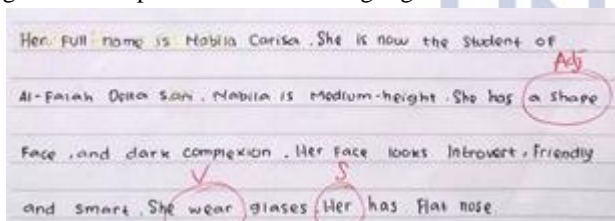 Her full name is Nabila Carisa. She is now the student of
Adj
Al-Falah Delta Sari. Nabila is Medium-height. She has a shape
Face, and dark complexion. Her Face looks Introvert, Friendly
V S
and smart. She wear glases. Her has Flat nose